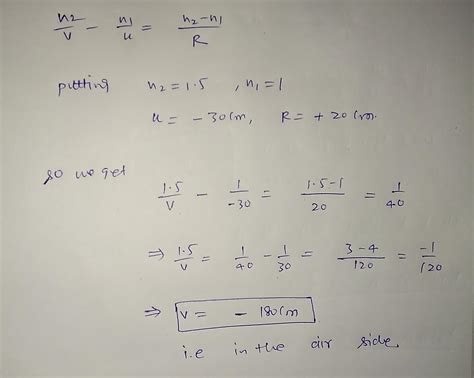 n₂/v - n₁/u = n₂-n₁/R
puttting n₂ = 1.5 , n₁ = 1
u = - 30 cm, R = + 20 cm.
so we get
1.5/v - 1/-30 = 1.5-1/20 = 1/40
⇒ 1.5/v = 1/40 - 1/30 = 3-4/120 = -1/120
⇒ v = - 180 cm
i.e in the air side